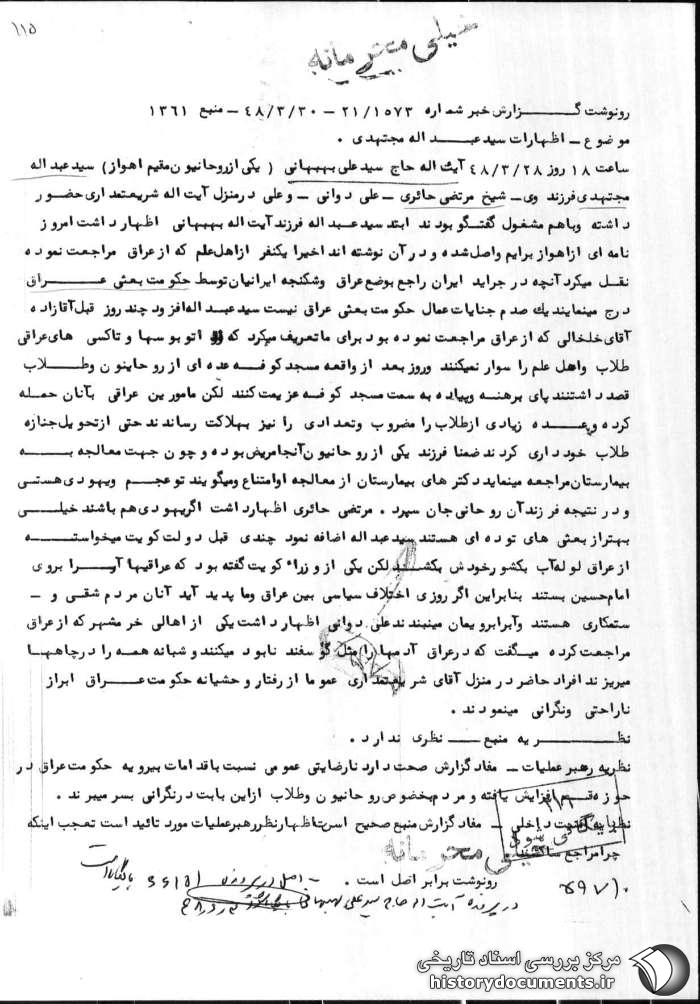 ۱۱۵
خیلی محرمانه
رونوشت گزارش خبر شماره ۲۱/۱۵۷۳ – ۴۸/۳/۳۰ – منبع ۱۳۶۱
موضوع – اظهارات سید عبداله مجتهدی .
ساعت ۱۸ روز ۴۸/۳/۲۸ آیت اله حاج سید علی بهبهانی (یکی از روحانیون مقیم اهواز) سید عبداله
مجتهدی فرزند وی – شیخ مرتضی حائری – علی دوانی – وعلی درمنزل آیت اله شریعتمداری حضور
داشته وباهم مشغول گفتگو بودند ابتدا سید عبداله فرزند آیت اله بهبهانی اظهار داشت امروز
نامه ای ازاهواز برایم واصل شده و در آن نوشته اند اخیرا یکنفر ازاهل علم که ازعراق مراجعت نموده
نقل میکرد آنچه در جراید ایران راجع بوضع عراق وشکنجه ایرانیان توسط حکومت بعثی عراق
درج مینمایند یك صدم جنایات عمال حکومت بعثی عراق نیست سید عبداله افزود چند روز قبل آقازاده
آقای خلخالی که ازعراق مراجعت نموده بود برای ما تعریف میکرد که اتوبوسها و تاکسی های عراقی
طلاب واهل علم را سوار نمیکنند وروز بعد از واقعه مسجد کوفه عده ای از روحانیون وطلاب
قصد داشتند پای برهنه وپیاده به سمت مسجد کوفه عزیمت کنند لکن مامورین عراقی بآنان حمله
کرده وعده زیادی ازطلاب را مضروب وتعدادی را نیز بهلاکت رساندند حتی ازتحویل جنازه
طلاب خودداری کردند ضمنا فرزند یکی از روحانیون آنجا مریض بوده و چون جهت معالجه به
بیمارستان مراجعه مینماید دکترهای بیمارستان از معالجه اوامتناع ومیگویند تو عجم ویهودی هستی
و در نتیجه فرزند آن روحانی جان سپرد . مرتضی حائری اظهار داشت اگر یهودی هم باشند خیلی
بهتراز بعثی های توده ای هستند سید عبداله اضافه نمود چندی قبل دولت کویت میخواسته
از عراق لوله آب بکشور خودش بکشد لکن یکی از وزراء کویت گفته بود که عراقیها آب را بروی
امام حسین بستند بنابراین اگر روزی اختلاف سیاسی بین عراق وما پدید آید آنان مردم شقی و –
ستمکاری هستند وآب رابرویمان میبندند علی دوانی اظهار داشت یکی از اهالی خرمشهر که ازعراق
مراجعت کرده میگفت که درعراق آدمها را مثل گوسفند نابود میکنند و شبانه همه را درچاهها
میریزند افراد حاضر در منزل آقای شریعتمداری عموما از رفتار و حشیانه حکومت عراق ابراز
ناراحتی ونگرانی مینمودند .
نظریه منبع – نظری ندارد .
نظریه رهبر عملیات – مفاد گزارش صحت دارد نارضایتی عمومی نسبت باقدامات بیرویه حکومت عراق در
حوزه قم افزایش یافته و مردم بخصوص روحانیون وطلاب ازاین بابت درنگرانی بسر میبرند .
نظریه امنیت داخلی – مفاد گزارش منبع صحیح است اظهارنظر رهبر عملیات مورد تائید است تعجب اینکه
چرا مراجع ساکتند
خیلی محرمانه
رونوشت برابر اصل است .
اصل در پرونده
بایگانی است
در پرونده آیت اله حاج سید علی بهبهانی
مرکز بررسی اسناد تاریخی
historydocuments.ir